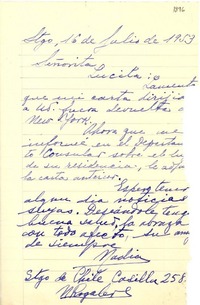 Stgo, 16 de Julio de 1953
Señorita
Lucila:
Lamento
que mi carta dirijida
a Ud. fuera devuelta de
New York.
Ahora que me
informé en el Departa
to Consular sobre el lu
de su residencia, le
la carta anterior.
Espero tener
algun día noticias
suyas. Deseándole teng
buena salud, la abraza
con todo afecto, su am
de siempre
Nadia
Stgo de Chile Casilla 258.